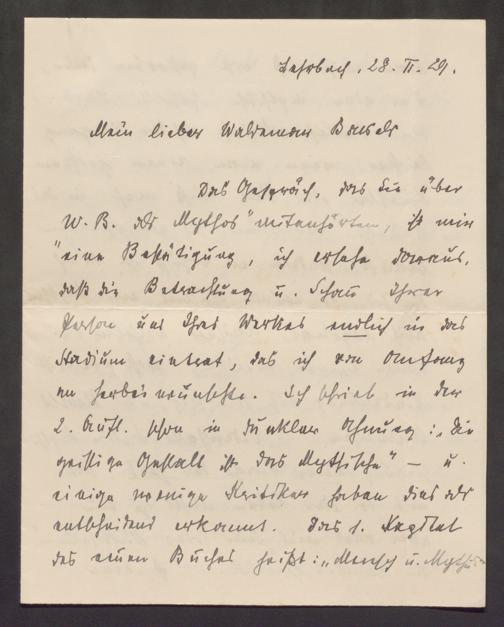 Lehrbach, 28. II. 29.
Mein lieber Waldemar Bonsels
Das Gespräch, das Sie über
W. B. als Mythos" mitanhörten, ist mir
"eine Bestätigung, ich ersehe daraus,
daß die Betrachtung u. Schau Ihrer
Person und Ihres Werkes endlich in das
Stadium eintrat, das ich von Anfang
an herbeiwünschte. Ich schrieb in der
2. Aufl. schon in dunkler Ahnung: „Die
geistige Gestalt ist das Mythische" – u.
einige wenige Kritiker haben dies als
entscheidend erkannt. Das 1. Kapitel
des neuen Buches heißt: „Mensch u. Mythus